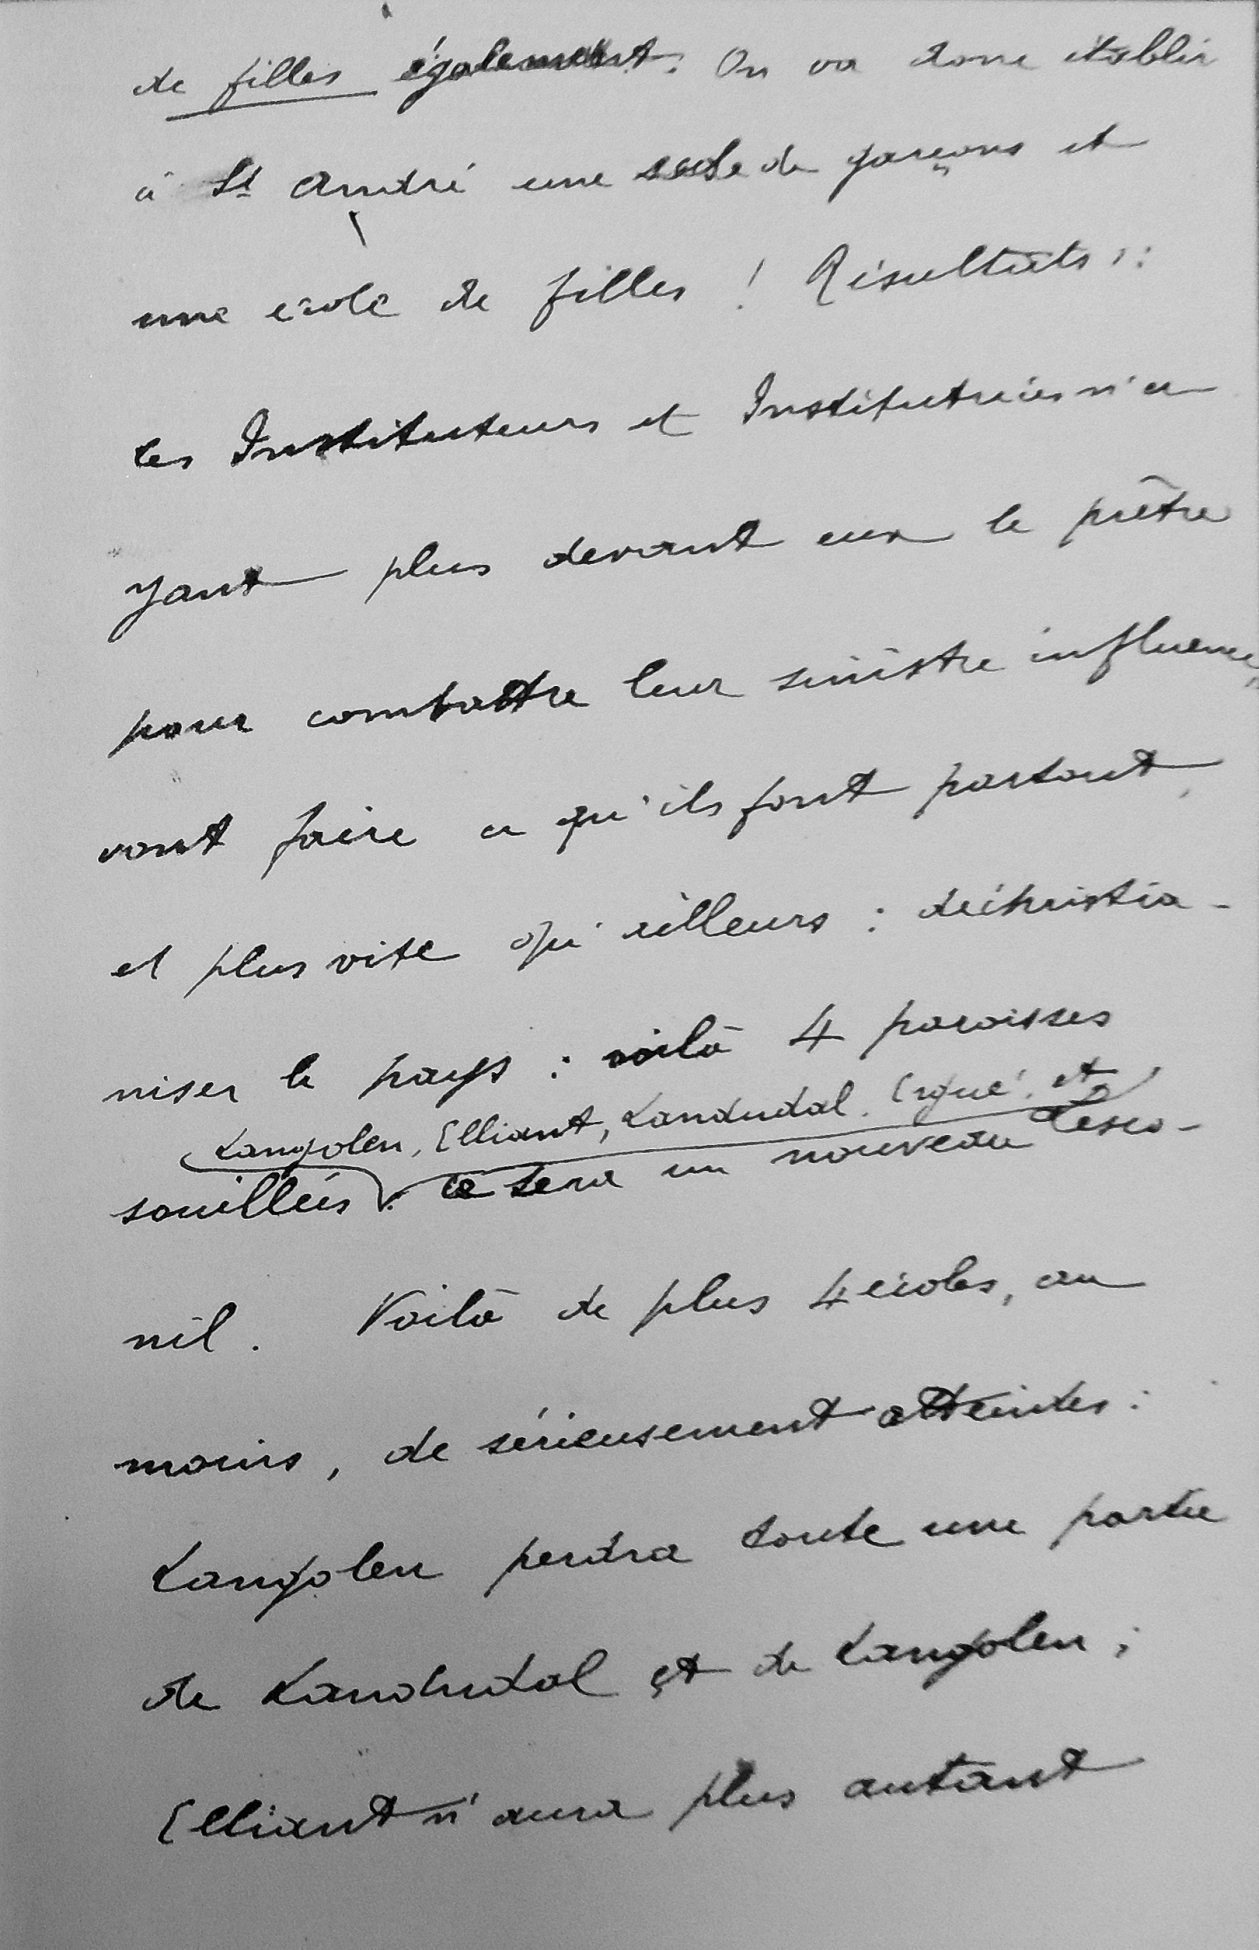 de filles également. On va donc établir
à St André une école de garçons et
une école de filles ! Résultats :
les Instituteurs et Institutrices n'a
yant plus devant eux le prêtre
pour combattre leur sinistre influence,
vont faire ce qu'ils font partout,
et plus vite qu'ailleurs : déchristia-
niser le pays : voilà 4 paroisses
Langolen, Elliant, Landudal, Ergué, et
souillées. ce sera un nouveau Lesco-
nil. Voilà de plus 4 écoles, au
moins, de sérieusement atteintes :
Langolen perdra toute une partie
de Landudal et de Langolen ;
Elliant n'aura plus autant